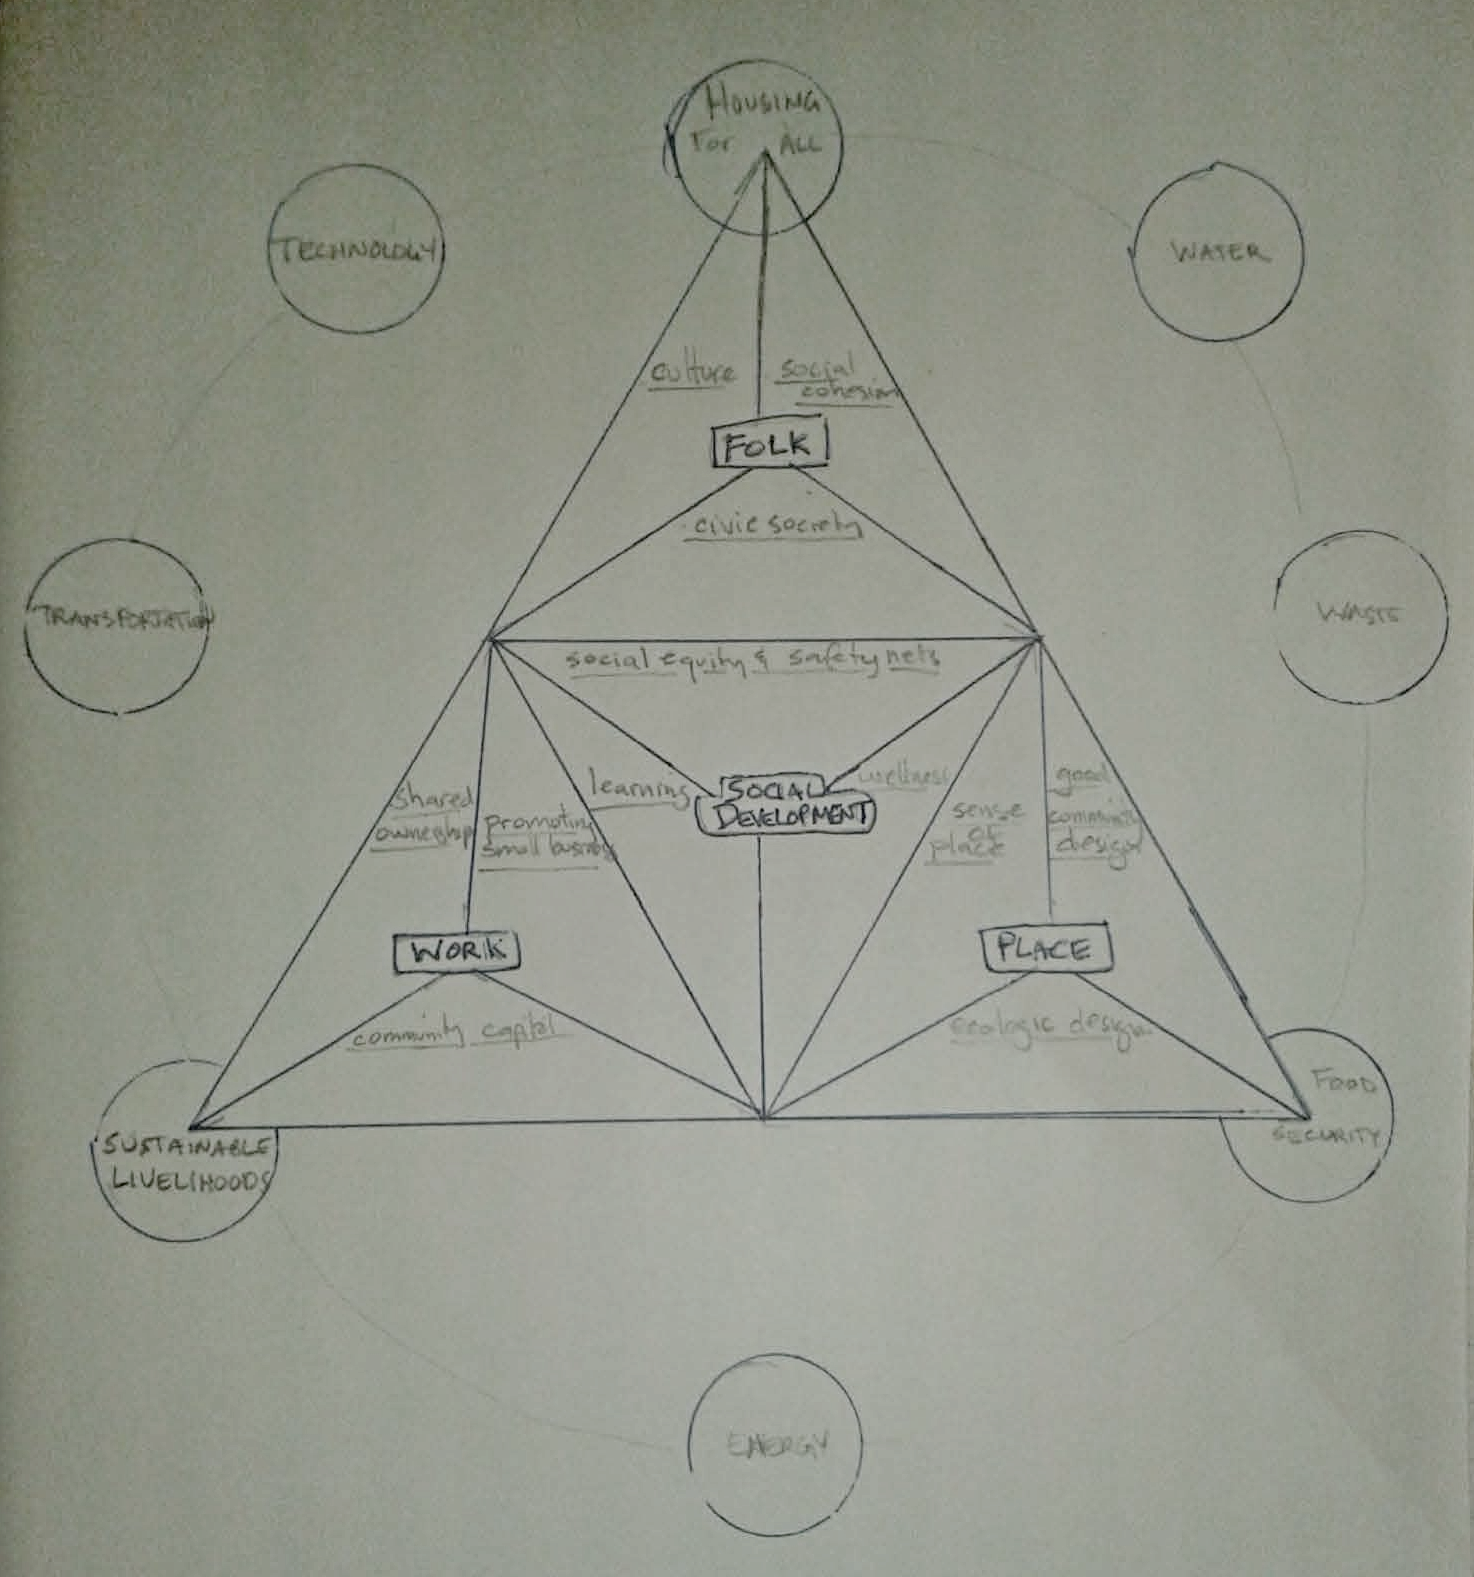 HOUSING
For ALL
TECHNOLOGY
WATER
culture
social
cohesion
FOLK
civic society
TRANSPORTATION
WASTE
social equity & safety nets
learning
SOCIAL
DEVELOPMENT
wellness
shared
ownership
promoting
small business
sense
of
place
good
community
design
WORK
PLACE
community capital
ecologic design
SUSTAINABLE
LIVELIHOODS
FOOD
SECURITY
ENERGY